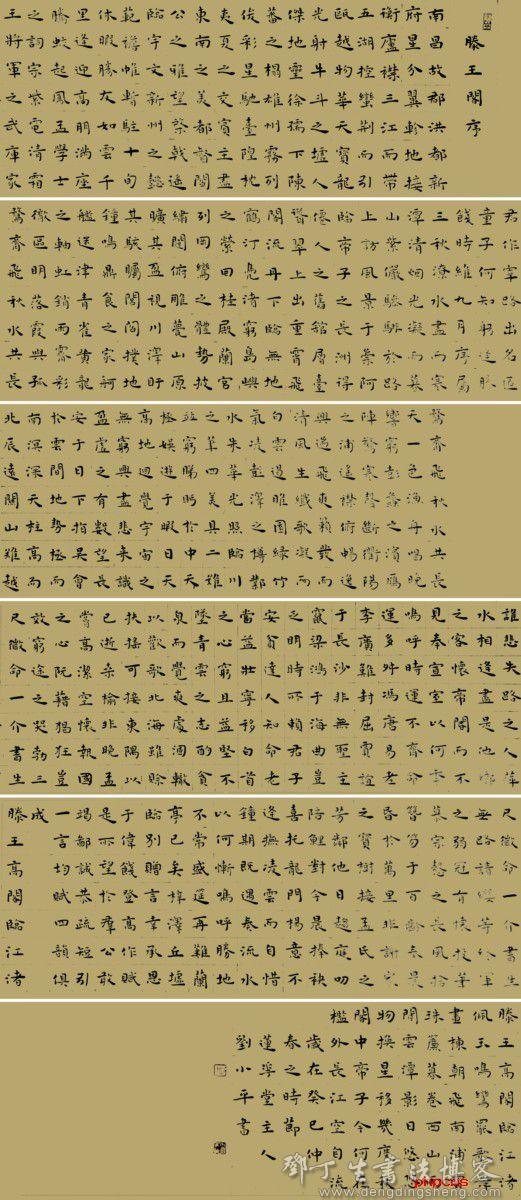 滕王閣序
南昌故郡洪都新
府星分翼軫地接
衡廬襟三江而帶
五湖控蠻荊而引
甌越物華天寶龍
光射牛斗之墟人
傑地靈徐孺下陳
蕃之榻雄州霧列
俊彩星馳臺隍枕
夷夏之交賓主盡
東南之美都督閻
公之雅望棨戟遙
臨宇文新州之懿
範襜帷暫駐十旬
休暇勝友如雲千
里逢迎高朋滿座
騰蛟起鳳孟學士
之詞宗紫電清霜
王將軍之武庫家
君作宰路出名區
童子何知躬逢勝
餞時維九月序屬
三秋潦水盡而寒
潭清煙光凝而暮
山紫儼驂騑於路
上訪風景于崇阿
臨帝子之長洲得
僊人之舊館層臺
聳翠上出重霄飛
閣流丹下臨無地
鶴汀鳧渚窮島嶼
之縈回桂殿蘭宮
列岡巒之體勢披
繡闥俯雕甍山原
曠其盈視川澤盱
其駭矚閭閻撲地
鐘鳴鼎食之家舸
艦迷津青雀黃龍
之軸虹銷雨霽彩
徹區明落霞與孤
鶩齊飛秋水共長
鶩齊飛秋水共長
天一色漁舟唱晚
響窮彭蠡之濱雁
陣驚寒聲斷衡陽
之浦遙襟俯暢逸
興遄飛爽籟發而
清風生纖歌凝而
白雲遏睢園綠竹
氣凌彭澤之樽鄴
水朱華光照臨川
之筆四美具二難
並窮睇眄於中天
極娛遊于暇日天
高地迥覺宇宙之
無窮興盡悲來識
盈虛之有數望長
安于日下指吳會
於雲間地勢極而
南溟深天柱高而
北辰遠關山難越
誰悲失路之人萍
水相逢盡是他鄉
之客懷帝閽而不
見奉宣室以何年
嗚呼時運不齊命
運多舛馮唐易老
李廣難封屈賈誼
于長沙非無聖主
竄梁鴻于海曲豈
乏明時所賴君子
安貧達人知命老
當益壯寧移白首
之心窮且益堅不
墜青雲之志酌貪
泉而覺爽處涸轍
以歡北海雖賒
扶搖可接東隅以
已逝桑榆非晚孟
嘗高潔空懷報國
之心阮籍猖狂豈
效窮途之哭勃三
尺微命一介書生
尺微命一介書生
無路請纓等終軍
之弱冠有懷投筆
慕宗愨之長風捨
簪笏于百齡奉晨
昏於萬里非謝家
之寶樹接孟氏之
芳鄰他日趨庭叨
陪鯉對今晨捧袂
喜托龍門楊意不
逢撫凌雲而自惜
鐘期既遇奏流水
以何慚嗚呼勝地
不常盛筵再難蘭
亭已矣梓澤丘墟
臨別贈言幸承恩
于偉餞登高作賦
是所望于群公敢
竭鄙誠恭疏短引
一言均賦四韻俱
成
滕王高閣臨江渚
滕王高閣臨江渚
佩玉鳴鸞罷歌舞
畫棟朝飛南浦雲
珠簾暮卷西山雨
閑雲潭影日悠悠
物換星移幾度秋
閣中帝子今何在
檻外長江空自流
歲在癸巳仲
春之時節
蓮淨堂主人
劉小平書
鄧丁生書法博客
www.dengdingsheng.com